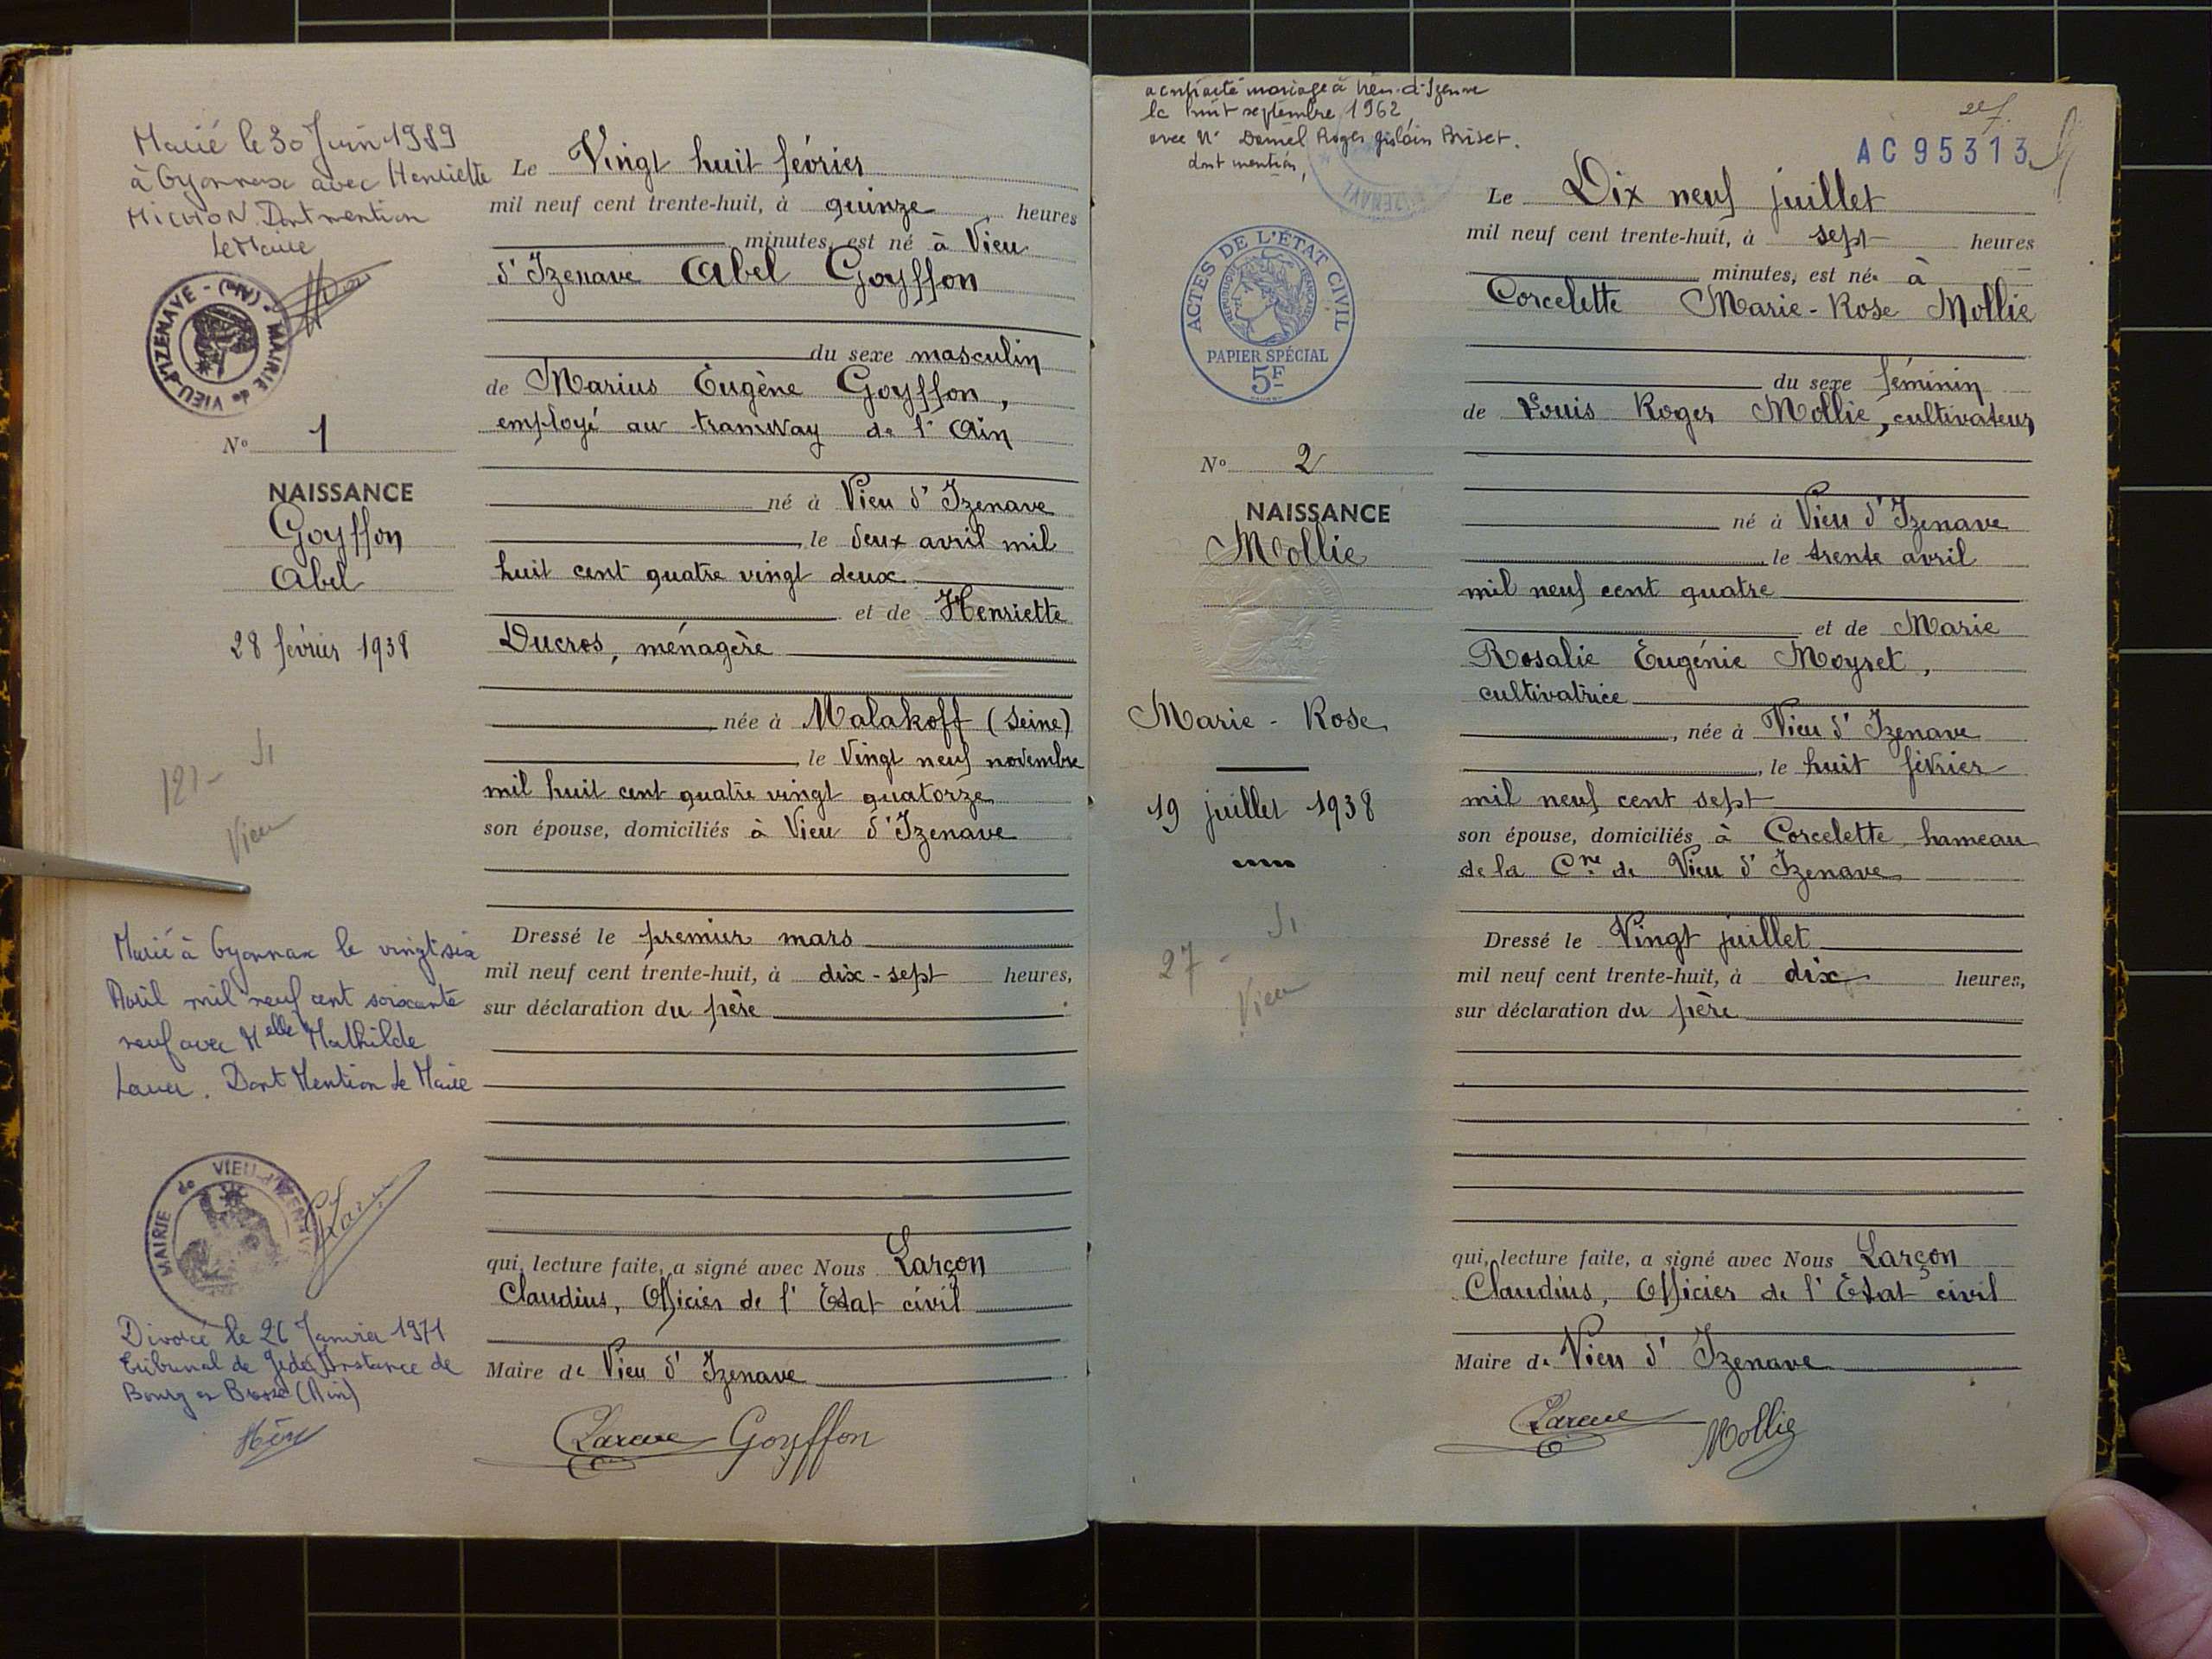 Marié le 30 Juin 1989
à Oyonnax avec Henriette
MICHON. Dont mention
Le Maire
MAIRIE de VIEU-d'IZENAVE - (Ain)
N° 1
NAISSANCE
Goyffon
Abel
28 février 1938
121 -
Vieu
Marié à Oyonnax le vingt six
Avril mil neuf cent soixante
neuf avec Melle Mathilde
. Dont Mention Le Maire
MAIRIE de VIEU-d'IZENAVE
Divorcé le 26 Janvier 1971
Tribunal de gde Instance de
Bourg en Bresse (Ain)
Le Vingt huit février
mil neuf cent trente-huit, à quinze heures
minutes, est né à Vieu
d'Izenave Abel Goyffon
du sexe masculin
de Marius Eugène Goyffon,
employé au tramway de l'Ain
né à Vieu d'Izenave
, le deux avril mil
huit cent quatre vingt deux
et de Henriette
Ducros, ménagère
, née à Malakoff (Seine)
, le Vingt neuf novembre
mil huit cent quatre vingt quatorze
son épouse, domiciliés à Vieu d'Izenave
Dressé le premier mars
mil neuf cent trente-huit, à dix-sept heures,
sur déclaration du père
qui, lecture faite, a signé avec Nous Larçon
Claudius, Officier de l'Etat civil
Maire de Vieu d'Izenave
Goyffon
a contracté mariage à Vieu-d'Izenave
le huit septembre 1962
avec Mr Daniel Roger Gislain Briset.
dont mention,
AC 95313
ACTES DE L'ÉTAT CIVIL
RÉPUBLIQUE FRANÇAISE
PAPIER SPÉCIAL
5F
N° 2
NAISSANCE
Mollie
Marie-Rose
19 juillet 1938
27 -
Vieu
Le Dix neuf juillet
mil neuf cent trente-huit, à sept heures
minutes, est née à
Corcelette Marie-Rose Mollie
du sexe féminin
de Louis Roger Mollie, cultivateur
né à Vieu d'Izenave
, le trente avril
mil neuf cent quatre
et de Marie
Rosalie Eugénie Moyret,
cultivatrice
, née à Vieu d'Izenave
, le huit février
mil neuf cent sept
son épouse, domiciliés à Corcelette, hameau
de la Cne de Vieu d'Izenave
Dressé le Vingt juillet
mil neuf cent trente-huit, à dix heures,
sur déclaration du père
qui, lecture faite, a signé avec Nous Larçon
Claudius, Officier de l'Etat civil
Maire de Vieu d'Izenave
Mollie